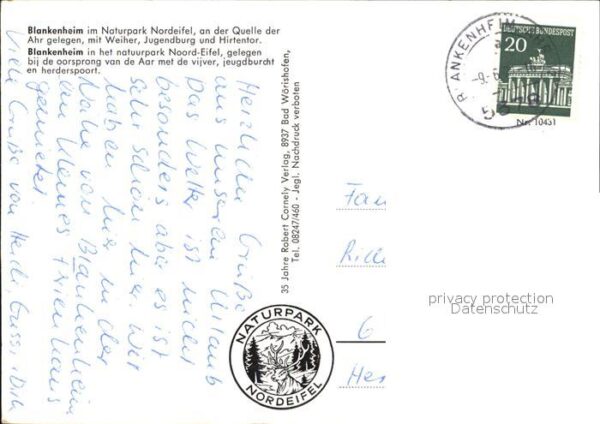 Blankenheim im Naturpark Nordeifel, an der Quelle der
Ahr gelegen, mit Weiher, Jugendburg und Hirtentor.
Blankenheim in het natuurpark Noord-Eifel, gelegen
bij de oorsprong van de Aar met de vijver, jeugdburcht
en herderspoort.
Herzliche Grüße
aus unserem Urlaub
Das Wetter ist nicht
besonders aber es ist
sehr schön hier. Wir
haben hier in der
Nähe von Blankenheim
ein kleines Ferienhaus
gemietet.
Viele Grüße von
35 Jahre Robert Cornely Verlag, 8937 Bad Wörishofen,
Tel. 08247/460 - Jegl. Nachdruck verboten
NATURPARK
NORDEIFEL
BLANKENHEIM
DEUTSCHE BUNDESPOST
20
Nr. 10431
Fam
privacy protection
Datenschutz